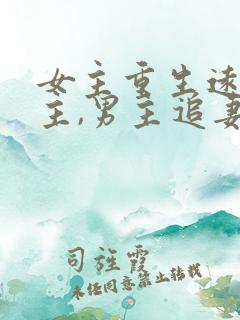 女主重生远
主,男主追妻
司旌霞
未经同意禁止转载